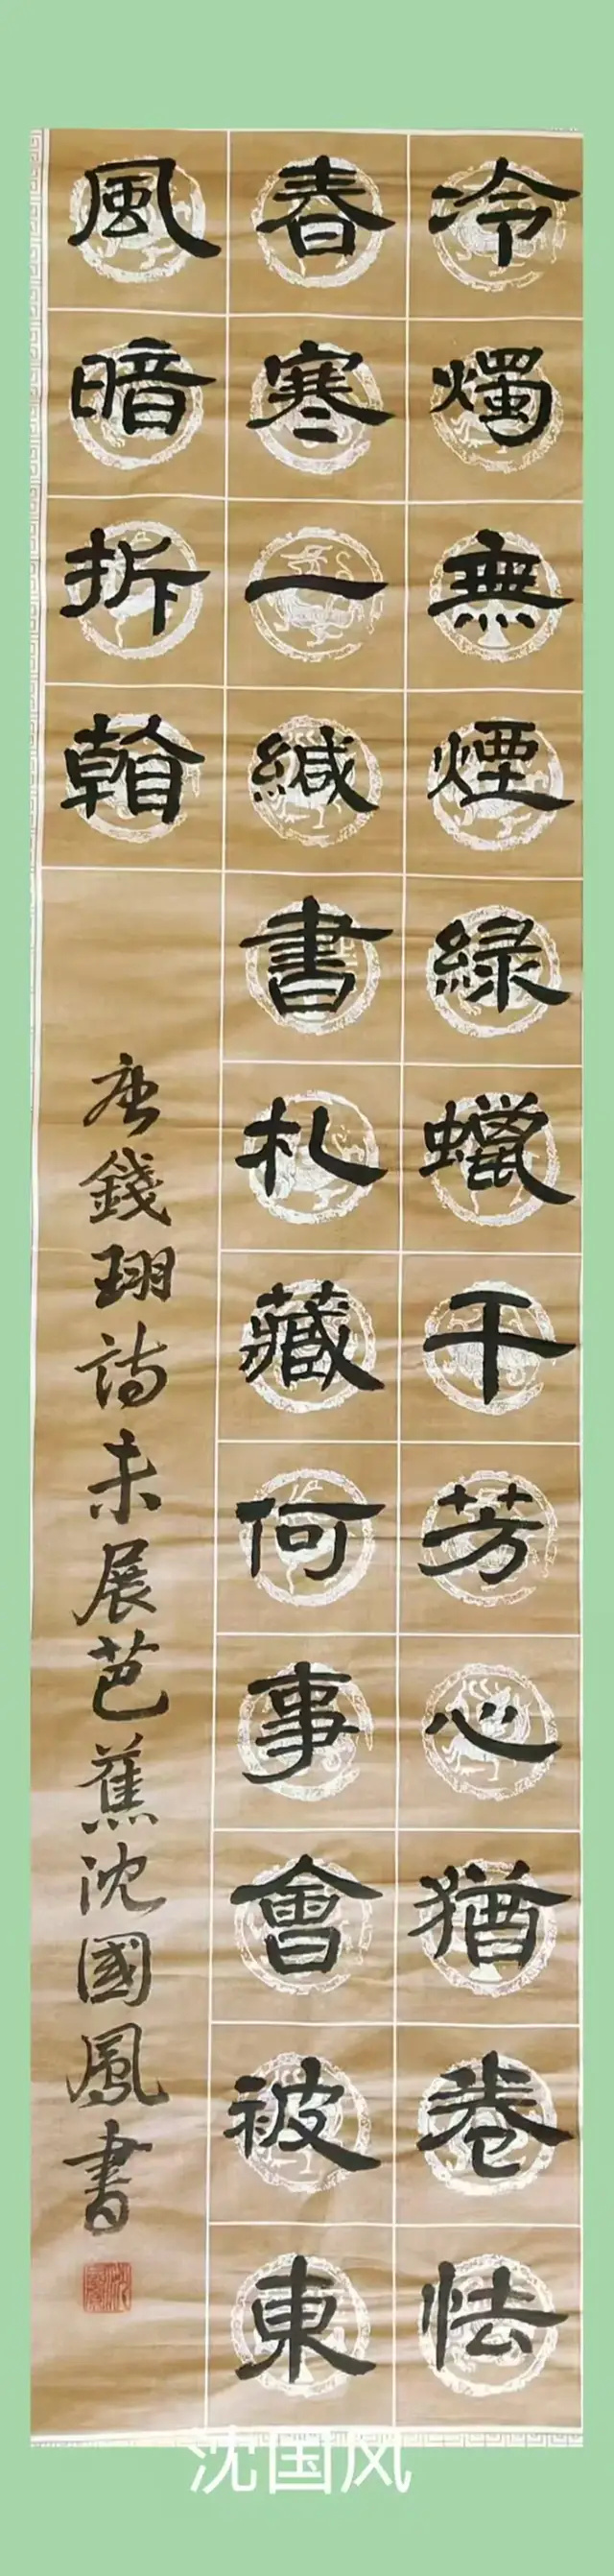 冷燭無煙緑蠟干芳心猶卷怯
春寒一緘書札藏何事會被東
風暗拆看
唐錢珝詩未展芭蕉沈國風書
沈国风